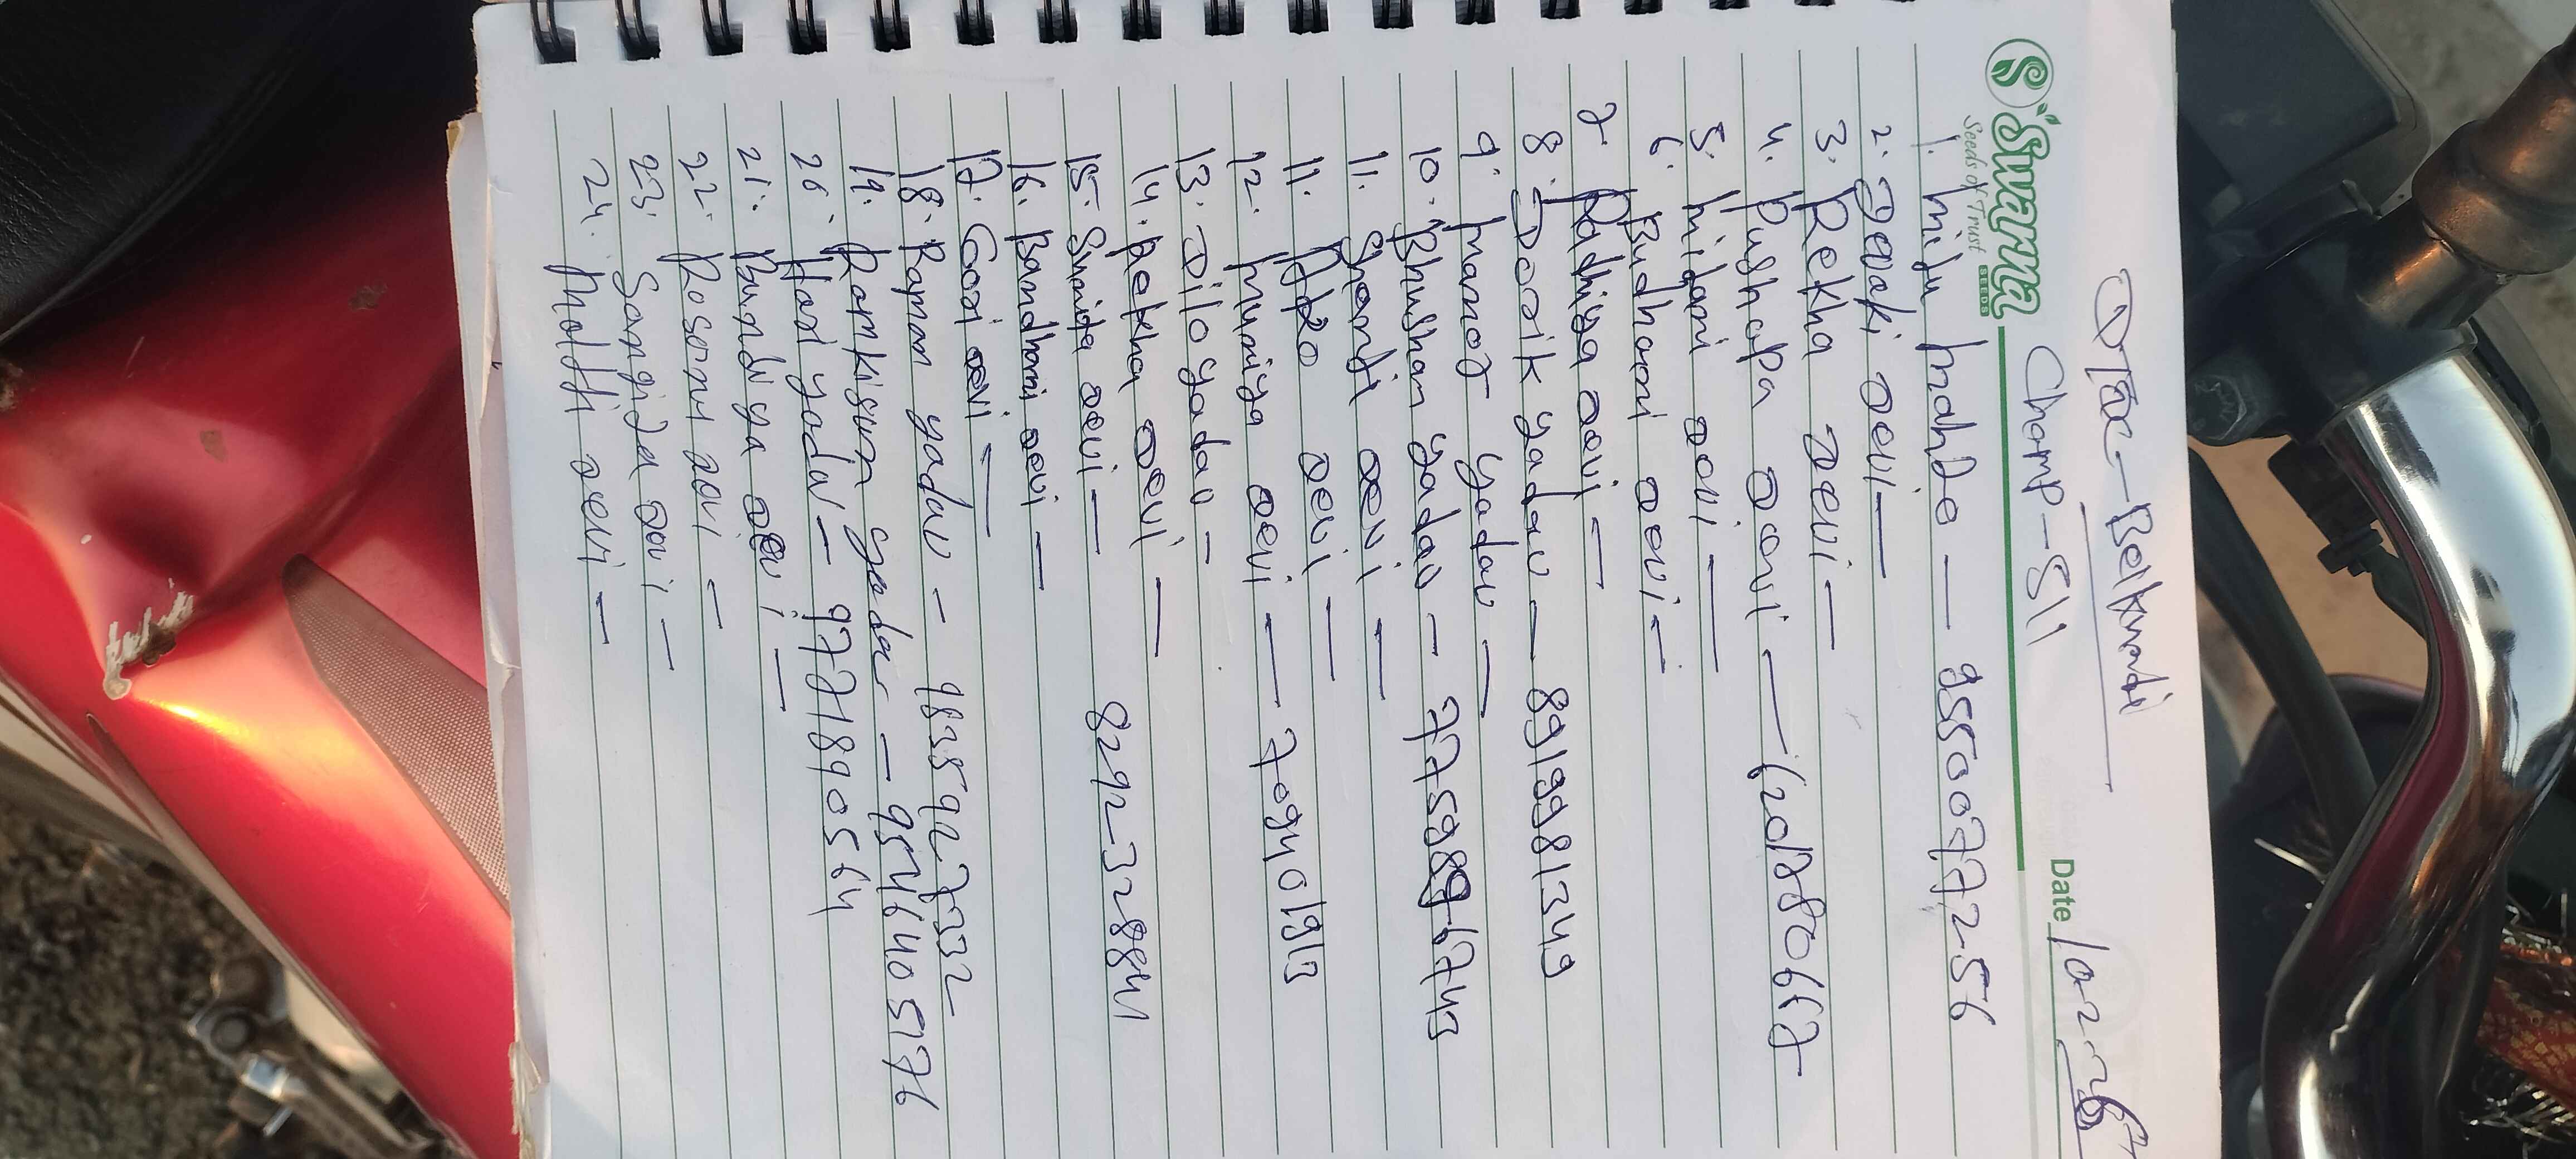 Tec - Belknadi
Suvarna
Seeds of Trust
SEEDS
Champ - 511
Date
1. Midu Mahto — 9550077256
2. Devaki Devi —
3. Rekha Devi —
4. Pushapa Devi — 6201880667
5. Milani Devi —
6. Budhani Devi —
7. Radhiya Devi —
8. Dooik yadav — 8919981349
9. Manoj yadav —
10. Bhushan yadav — 7759896743
11. Shanti Devi —
11. Devi —
12. Muniya Devi — 7094019113
13. Dilo yadav —
14. Rekha Devi —
15. Sunita Devi — 8292328841
16. Bandhani Devi —
17. Gori Devi —
18. Raman yadav — 9835927332
19. Ramkisun yadav — 9546405176
20. Hari yadav — 9721890564
21. Bundiya Devi —
22. Rosomi Devi —
23. Sangida Devi —
24. Malti Devi —